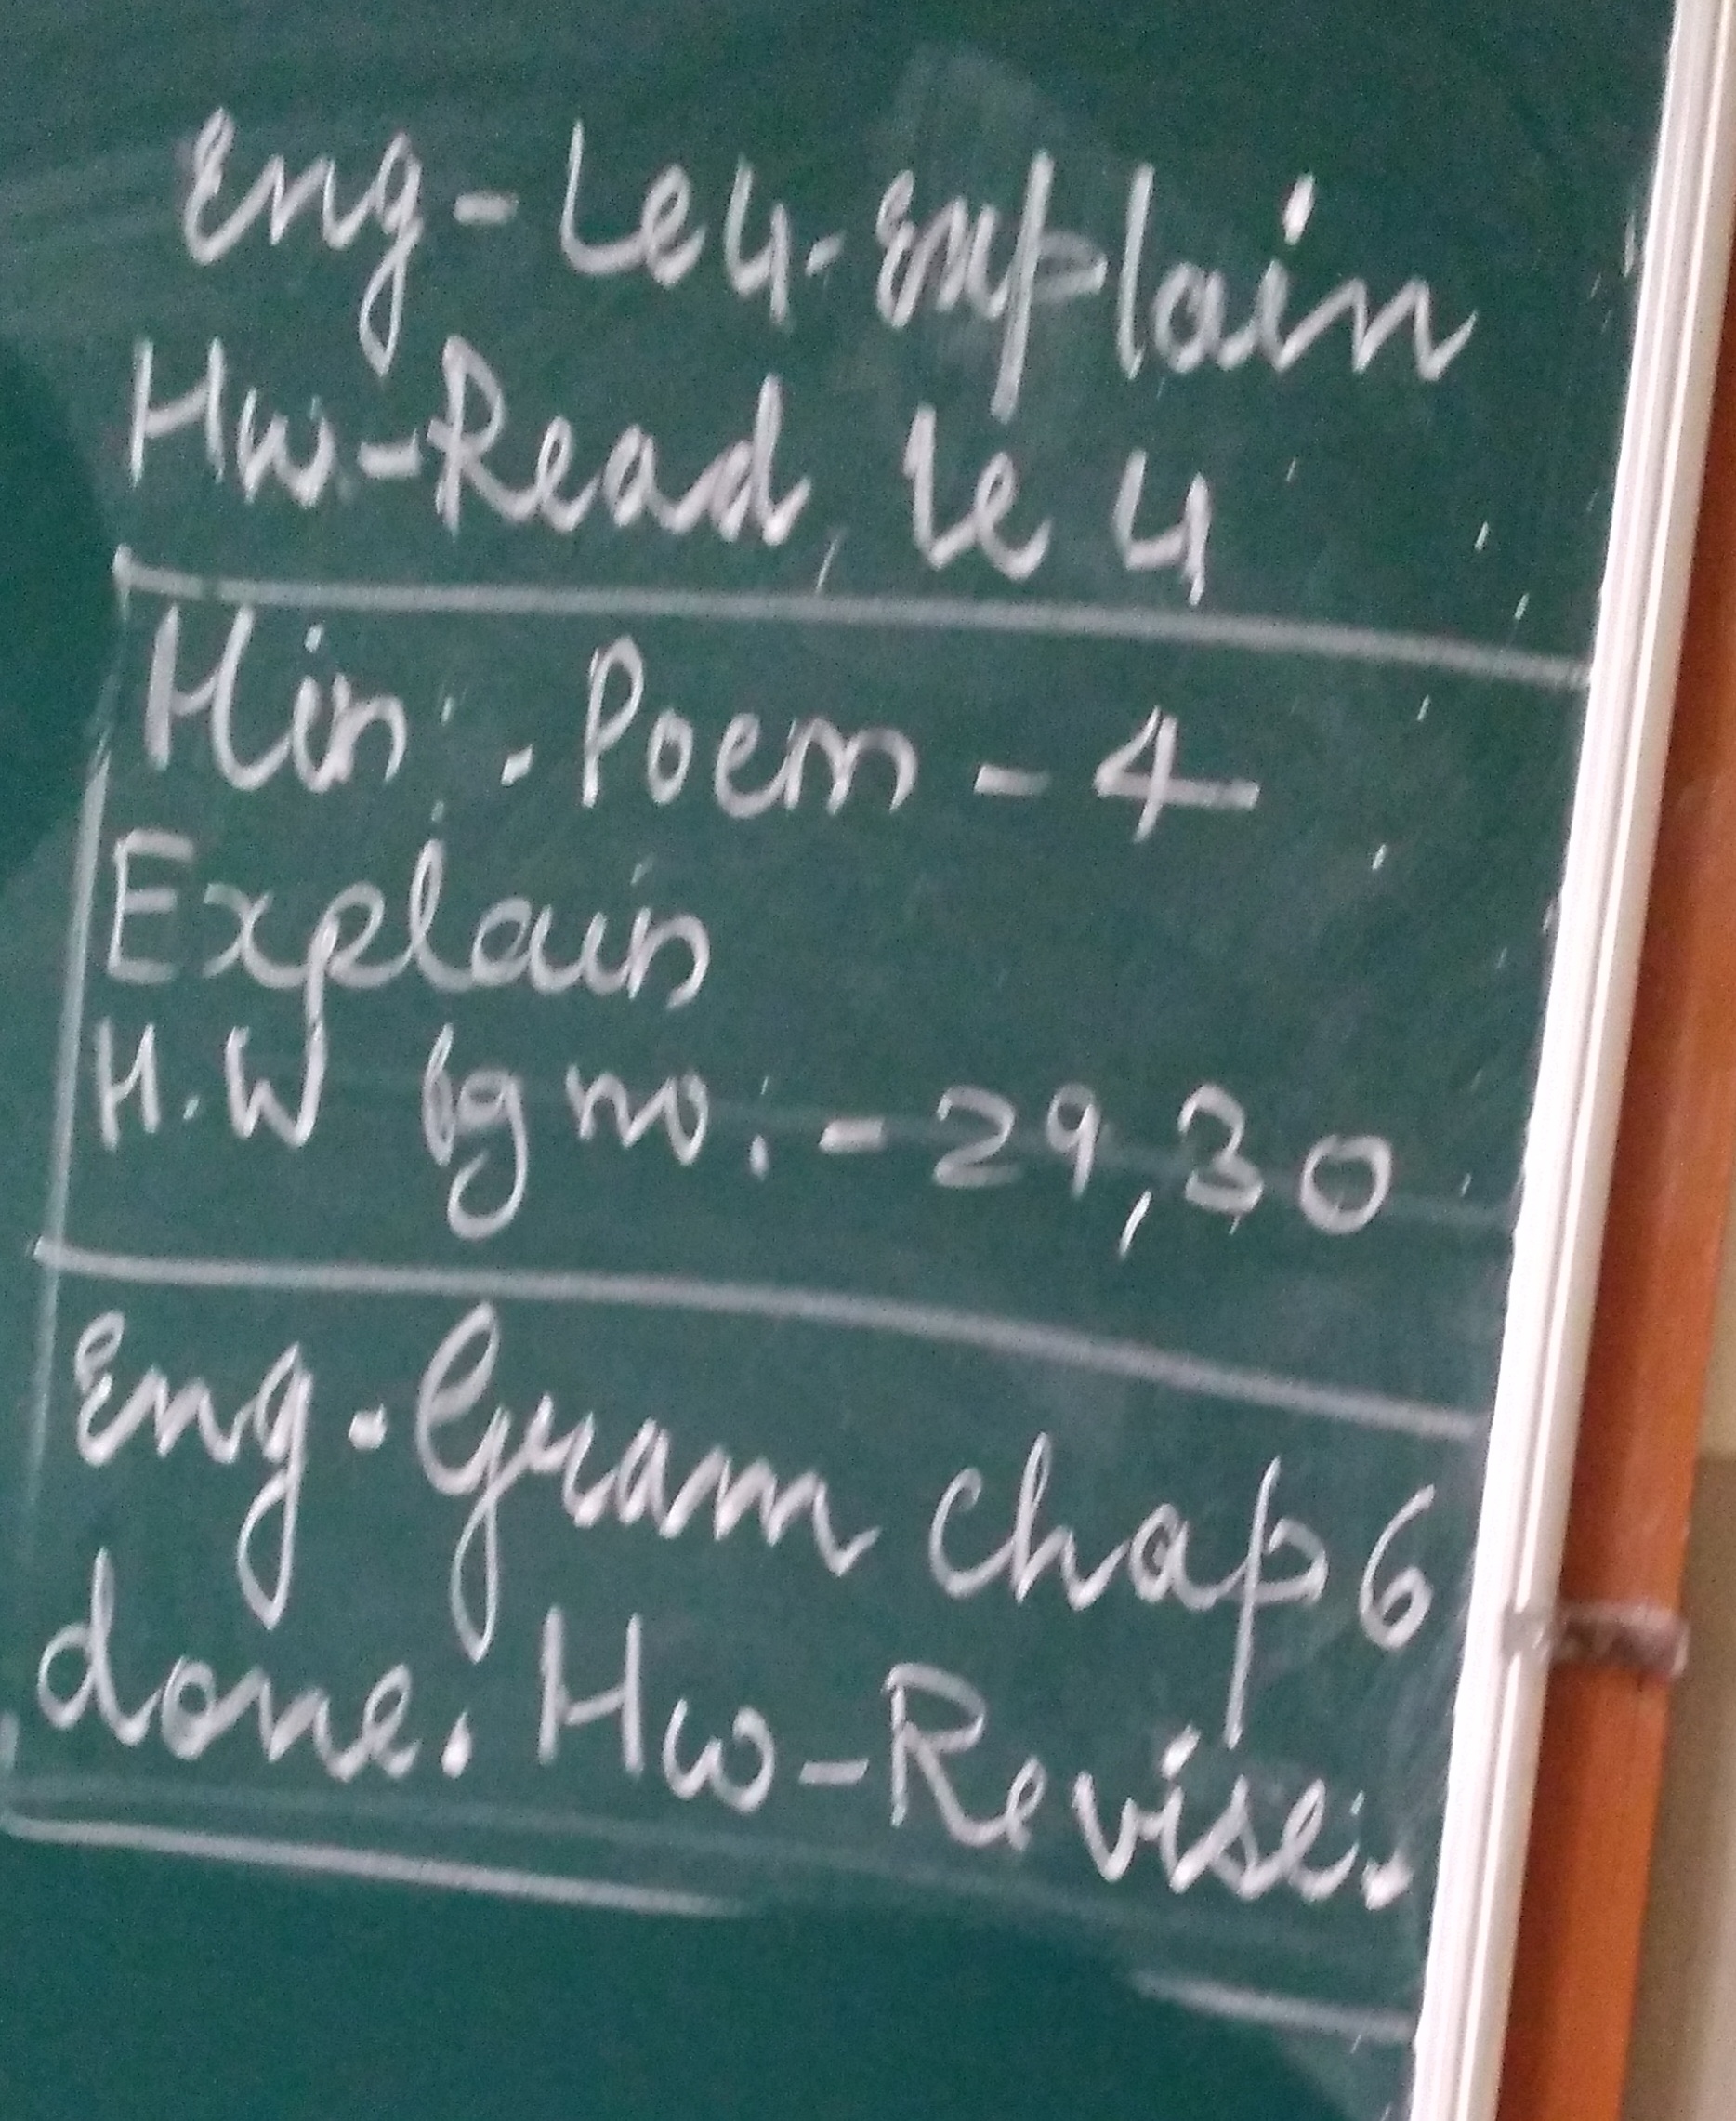 Eng - Le 4. Explain
Hw - Read, le 4
Hin. - Poem - 4
Explain
H.W Pg no. - 29, 30
Eng. Gram Chap 6
done. Hw - Revise.